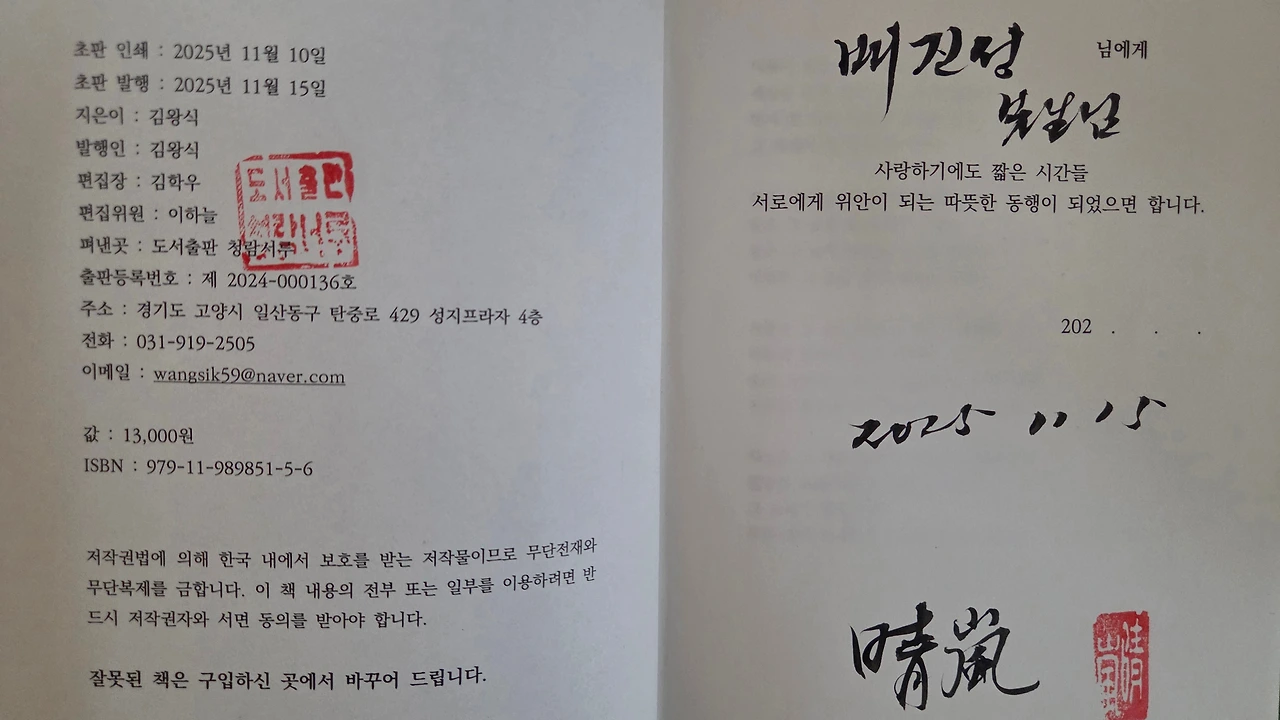 초판 인쇄 : 2025년 11월 10일
초판 발행 : 2025년 11월 15일
지은이 : 김왕식
발행인 : 김왕식
편집장 : 김학우
편집위원 : 이하늘
펴낸곳 : 도서출판 청람서루
출판등록번호 : 제 2024-000136호
주소 : 경기도 고양시 일산동구 탄중로 429 성지프라자 4층
전화 : 031-919-2505
이메일 : wangsik59@naver.com
값 : 13,000원
ISBN : 979-11-989851-5-6
저작권법에 의해 한국 내에서 보호를 받는 저작물이므로 무단전재와
무단복제를 금합니다. 이 책 내용의 전부 또는 일부를 이용하려면 반
드시 저작권자와 서면 동의를 받아야 합니다.
잘못된 책은 구입하신 곳에서 바꾸어 드립니다.
도서출판
청람서루
배진성 님에게
사랑하기에도 짧은 시간들
서로에게 위안이 되는 따뜻한 동행이 되었으면 합니다.
202 . . .
2025 11 15
晴嵐